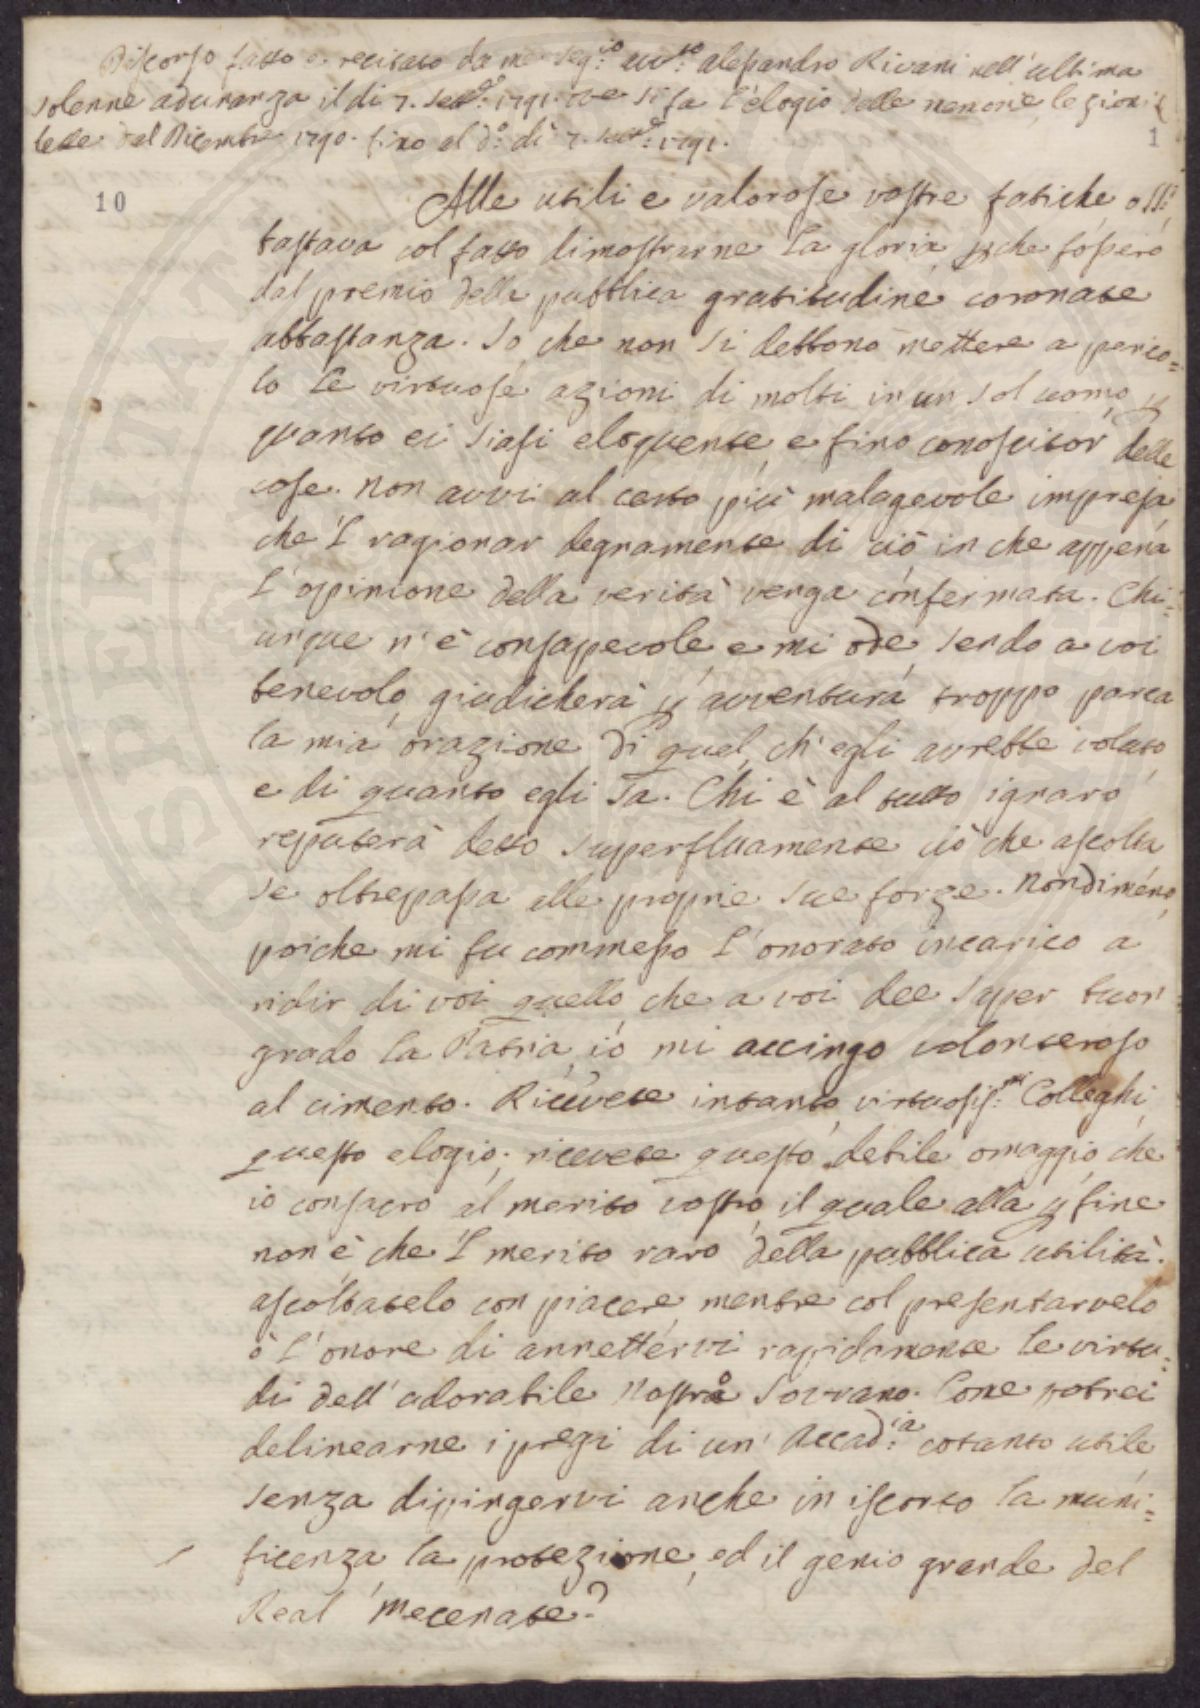 Discorso fatto e recitato da me Seg:io avv:to alessandro Rivani nell'ultima
solenne adunanza il dì 7. Sett:e 1791. ove si fa l'elogio delle memorie, lezioni &
lette dal Dicembre 1790. fino al d:o dì 7. Sett:e 1791.
1
10
Alle utili e valorose vostre fatiche, oss:i
bastava col fatto dimostrarne la gloria, pche fosfero
dal premio della pubblica gratitudine coronate
abbastanza. So che non si debbono mettere a perico=
lo le virtuose azioni di molti in un sol uomo p
quanto ei siasi eloquente, e fino conoscitor delle
cose. Non avvi al certo più malagevole impresa
che 'l ragionar degnamente di ciò in che appena
l'opinione della verità venga confermata. Chi=
unque n'è consapevole e mi ode, sendo a voi
benevolo, giudicherà p avventura troppo parca
la mia orazione di quel, ch'egli avrebbe voluto,
e di quanto egli sa. Chi è al tutto ignaro
reputerà detto superfluamente ciò che ascolta
se oltrepassa alle proprie sue forze. Nondimeno,
poiche mi fu commesso l'onorato incarico a
ridir di voi quello che a voi dee saper buon=
grado la Patria, io mi accingo volonteroso
al cimento. Ricevete intanto, virtuosis:mi Colleghi
questo elogio; ricevete questo debile omaggio, che
io consacro al merito vostro, il quale alla p fine
non è che 'l merito raro della pubblica utilità.
ascoltatelo con piacere, mentre col presentarvelo
ò l'onore di annettervi rapidamente le virtu=
di dell'adorabile nostro Sovrano. Come potrei
delinearne i pregi di un' Accad:ia cotanto utile
senza dippingervi anche in iscorto la muni=
ficenza la protezione, ed il genio grande del
Real Mecenate?